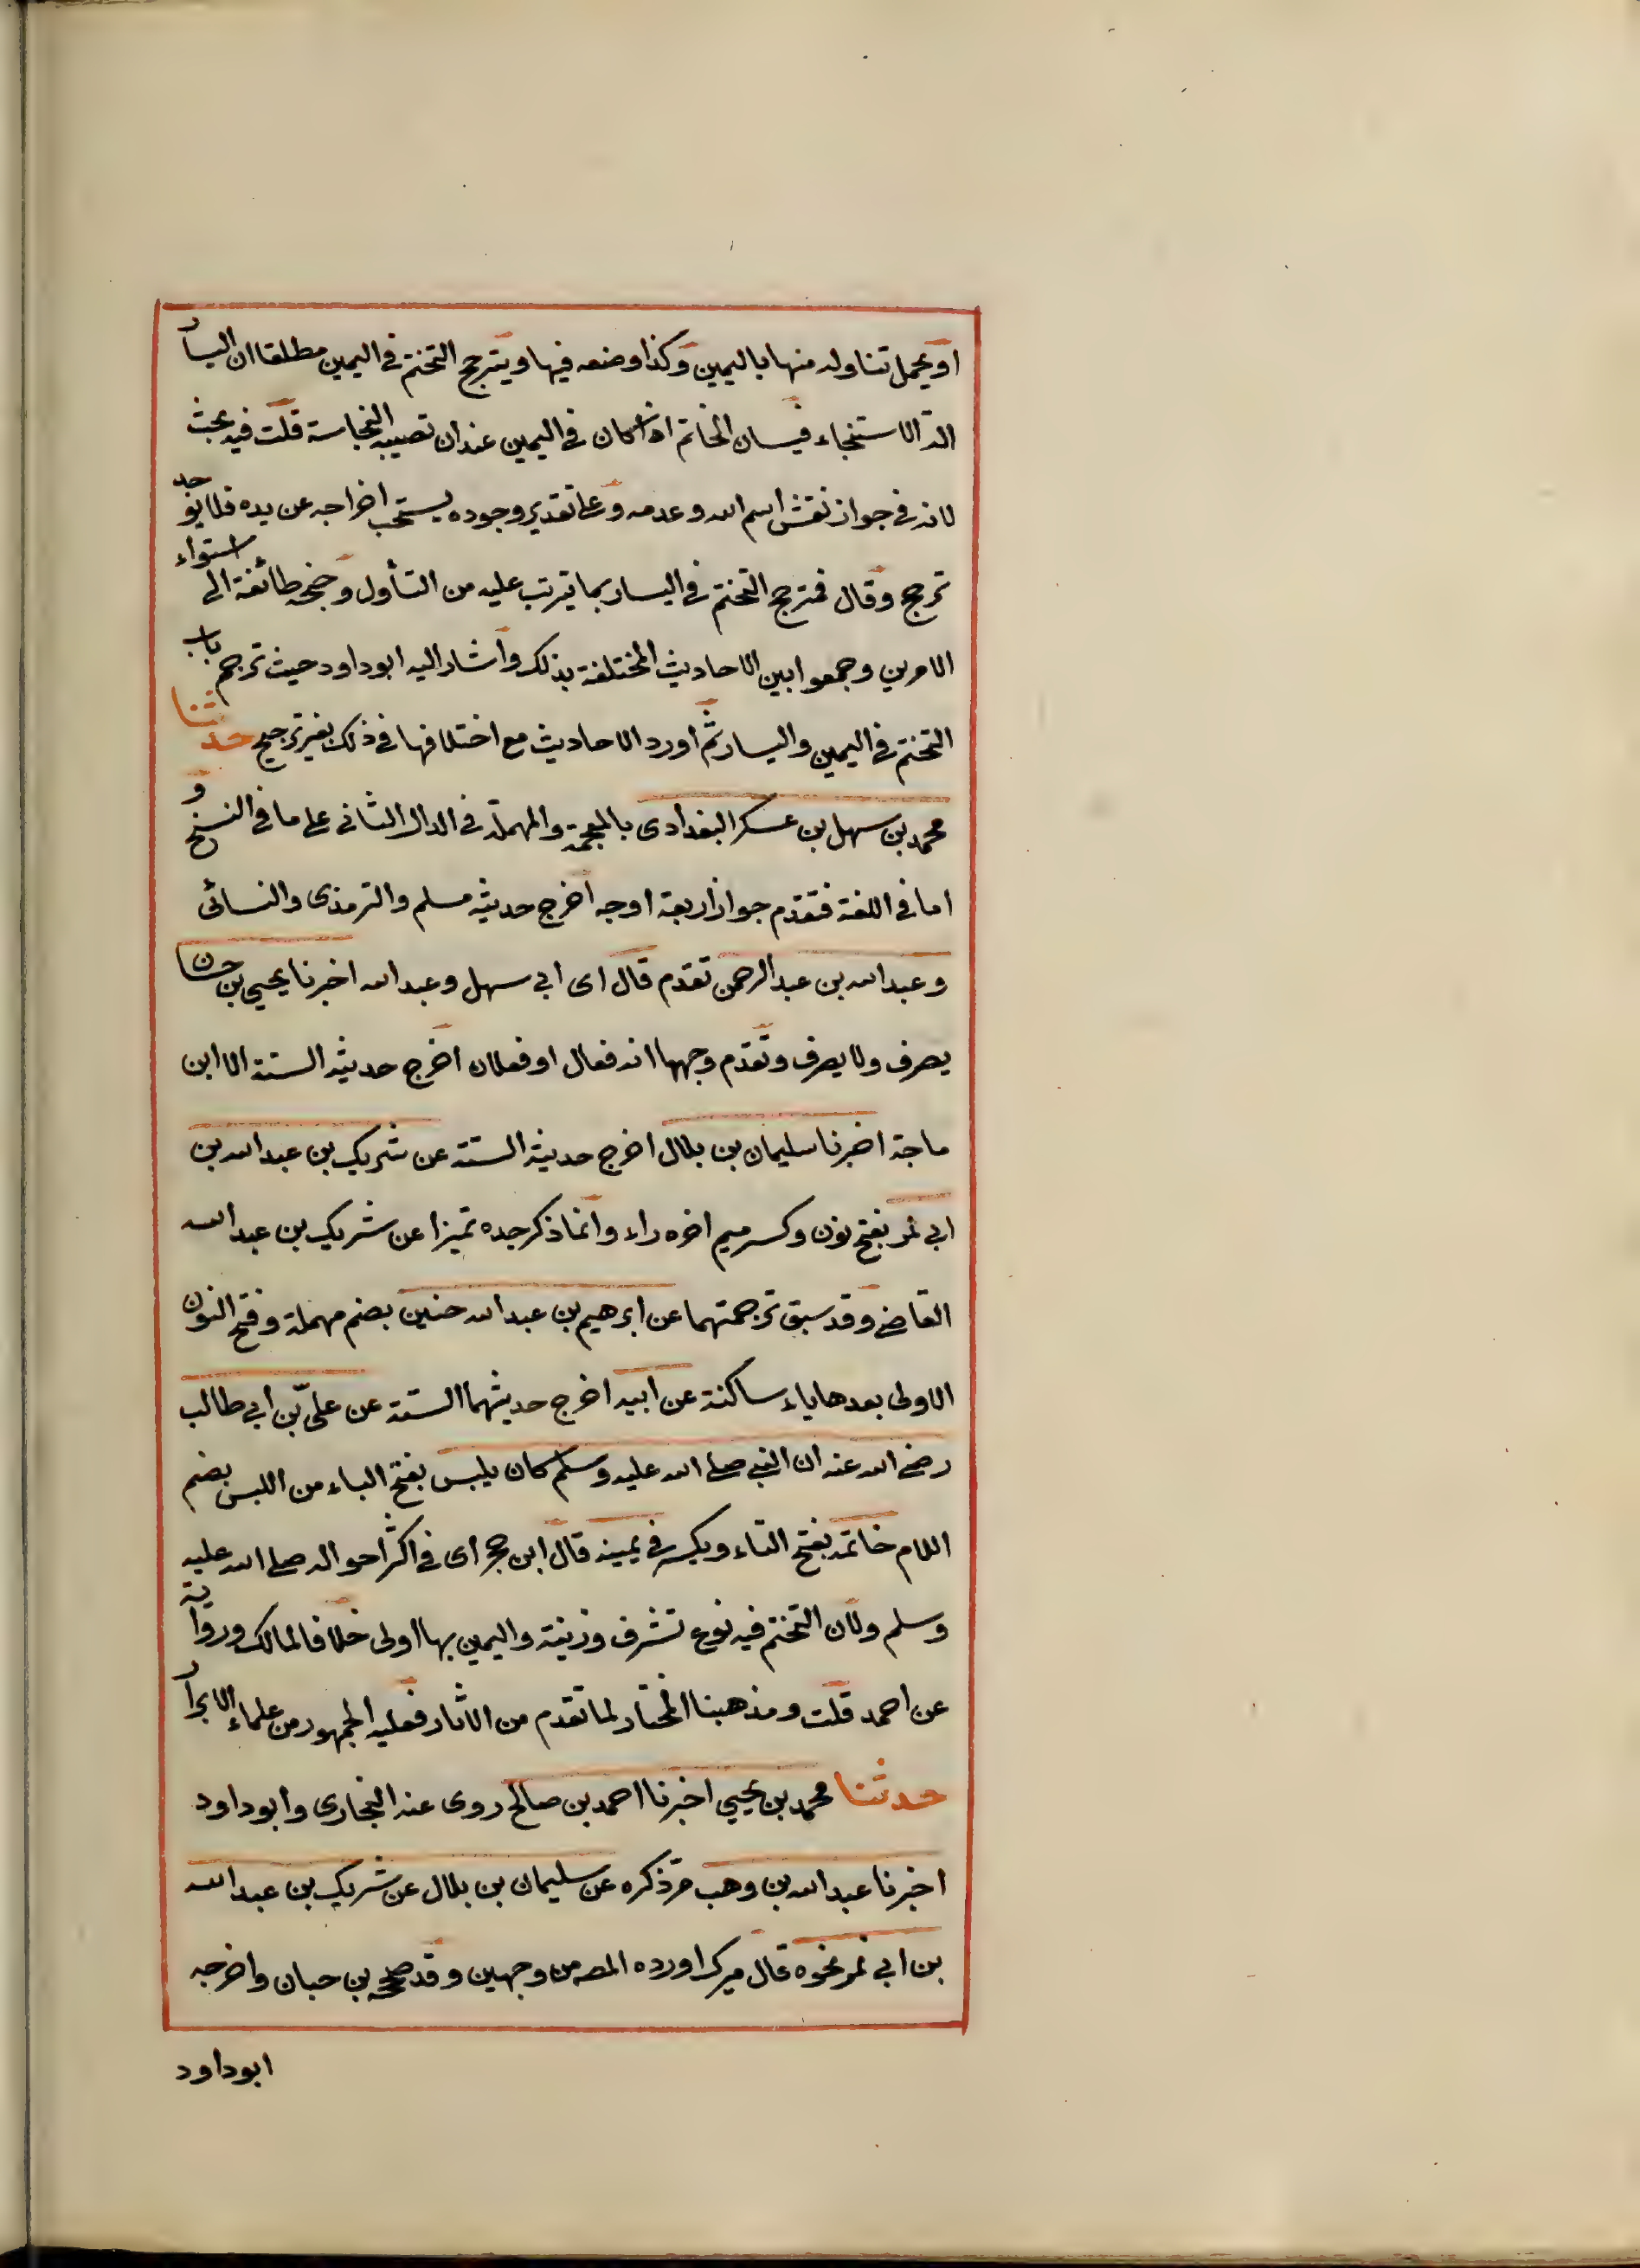 او يحمل تناوله منها باليمين وكذا وضعه فيها ويترجح التختم في اليمين مطلقا ان اليسار
الة الاستنجاء فيسان الخاتم اذا كان في اليمين عند ان تصيبه النجاسة قلت فيه بحث
لانه في جواز نقش اسم الله وعدمه وعلى تقدير وجوده يستحب اخراجه عن يده فلا يوجد
ترجح وقال فمترجح التختم في اليسار بما يترتب عليه من التأول وجنحه طائفة الى استواء
الامرين وجمعوا بين الاحاديث المختلفة بذلك واشار اليه ابو داود حيث ترجم باب
التختم في اليمين واليسار ثم اورد الاحاديث مع اختلافها في ذلك بغير ترجيح حدثنا
محمد بن سهل بن عسكر البغدادى بالمعجمة والمهملة في الدال الثانى على ما في النسخ و
اما في اللغة فتقدم جواز اربعة اوجه اخرج حديثه مسلم والترمذى والنسائى
وعبد الله بن عبد الرحمن تقدم قال اى ابي سهل وعبد الله اخبرنا يحيى بن حسان
يصرف ولا يصرف وتقدم وجهها انه فعال او فعلان اخرج حديثه الستة الا ابن
ماجة اخبرنا سليمان بن بلال اخرج حديثه الستة عن شريك بن عبد الله بن
ابي نمر بفتح نون وكسر ميم اخره راء وانما ذكر جده تميزا عن شريك بن عبد الله
القاضى وقد سبق ترجمتهما عن ابرهيم بن عبد الله حنين بضم مهملة وفتح النون
الاولى بعدها ياء ساكنة عن ابيه اخرج حديثهما الستة عن علىّ بن ابي طالب
رضى الله عنه ان النبى صلى الله عليه وسلم كان يلبس بفتح الباء من اللبس بضم
اللام خاتمه بفتح التاء ويكسر في يمينه قال ابن حجر اى في اكثر احواله صلى الله عليه
وسلم ولان التختم فيه نوع تشرف وزينة واليمين بها اولى خلافا لمالك ورواية
عن احمد قلت ومذهبنا المختار لما تقدم من الاثار فعليه الجمهور من علماء الابرار
حدثنا محمد بن يحيى اخبرنا احمد بن صالح روى عنه البخارى وابو داود
اخبرنا عبد الله بن وهب مرّ ذكره عن سليمان بن بلال عن شريك بن عبد الله
بن ابي نمر نحوه قال ميرك اورده المصه من وجهين وقد صححه بن حبان واخرجه
ابو داود